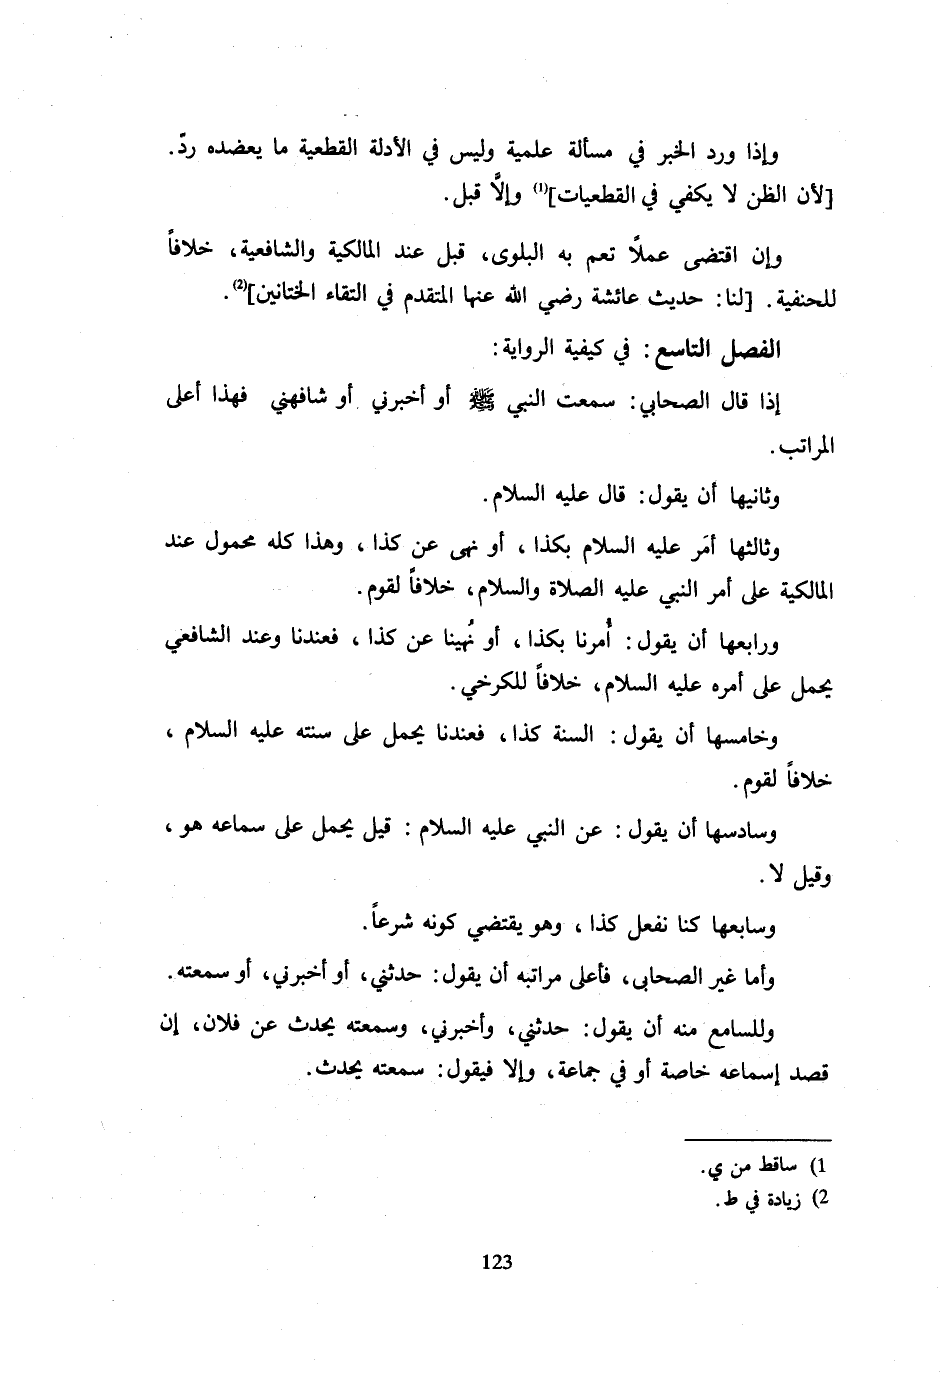 وإذا ورد الخبر في مسألة علمية وليس في الأدلة القطعية ما يعضده ردّ.
[لأن الظن لا يكفي في القطعيات](1) وإلاَّ قبل.
وإن اقتضى عملاً تعم به البلوى، قبل عند المالكية والشافعية، خلافاً
للحنفية. [لنا: حديث عائشة رضي الله عنها المتقدم في التقاء الختانين](2).
الفصل التاسع: في كيفية الرواية:
إذا قال الصحابي: سمعت النبي ﷺ أو أخبرني أو شافهني فهذا أعلى
المراتب.
وثانيها أن يقول: قال عليه السلام.
وثالثها أمَر عليه السلام بكذا، أو نهى عن كذا، وهذا كله محمول عند
المالكية على أمر النبي عليه الصلاة والسلام، خلافاً لقوم.
ورابعها أن يقول: أُمرنا بكذا، أو نُهينا عن كذا، فعندنا وعند الشافعي
يحمل على أمره عليه السلام، خلافاً للكرخي.
وخامسها أن يقول: السنة كذا، فعندنا يحمل على سنته عليه السلام،
خلافاً لقوم.
وسادسها أن يقول: عن النبي عليه السلام: قيل يحمل على سماعه هو،
وقيل لا.
وسابعها كنا نفعل كذا، وهو يقتضي كونه شرعاً.
وأما غير الصحابى، فأعلى مراتبه أن يقول: حدثني، أو أخبرني، أو سمعته.
وللسامع منه أن يقول: حدثني، وأخبرني، وسمعته يحدث عن فلان، إن
قصد إسماعه خاصة أو في جماعة، وإلا فيقول: سمعته يحدث.
1) ساقط من ي.
2) زيادة في ط.
123